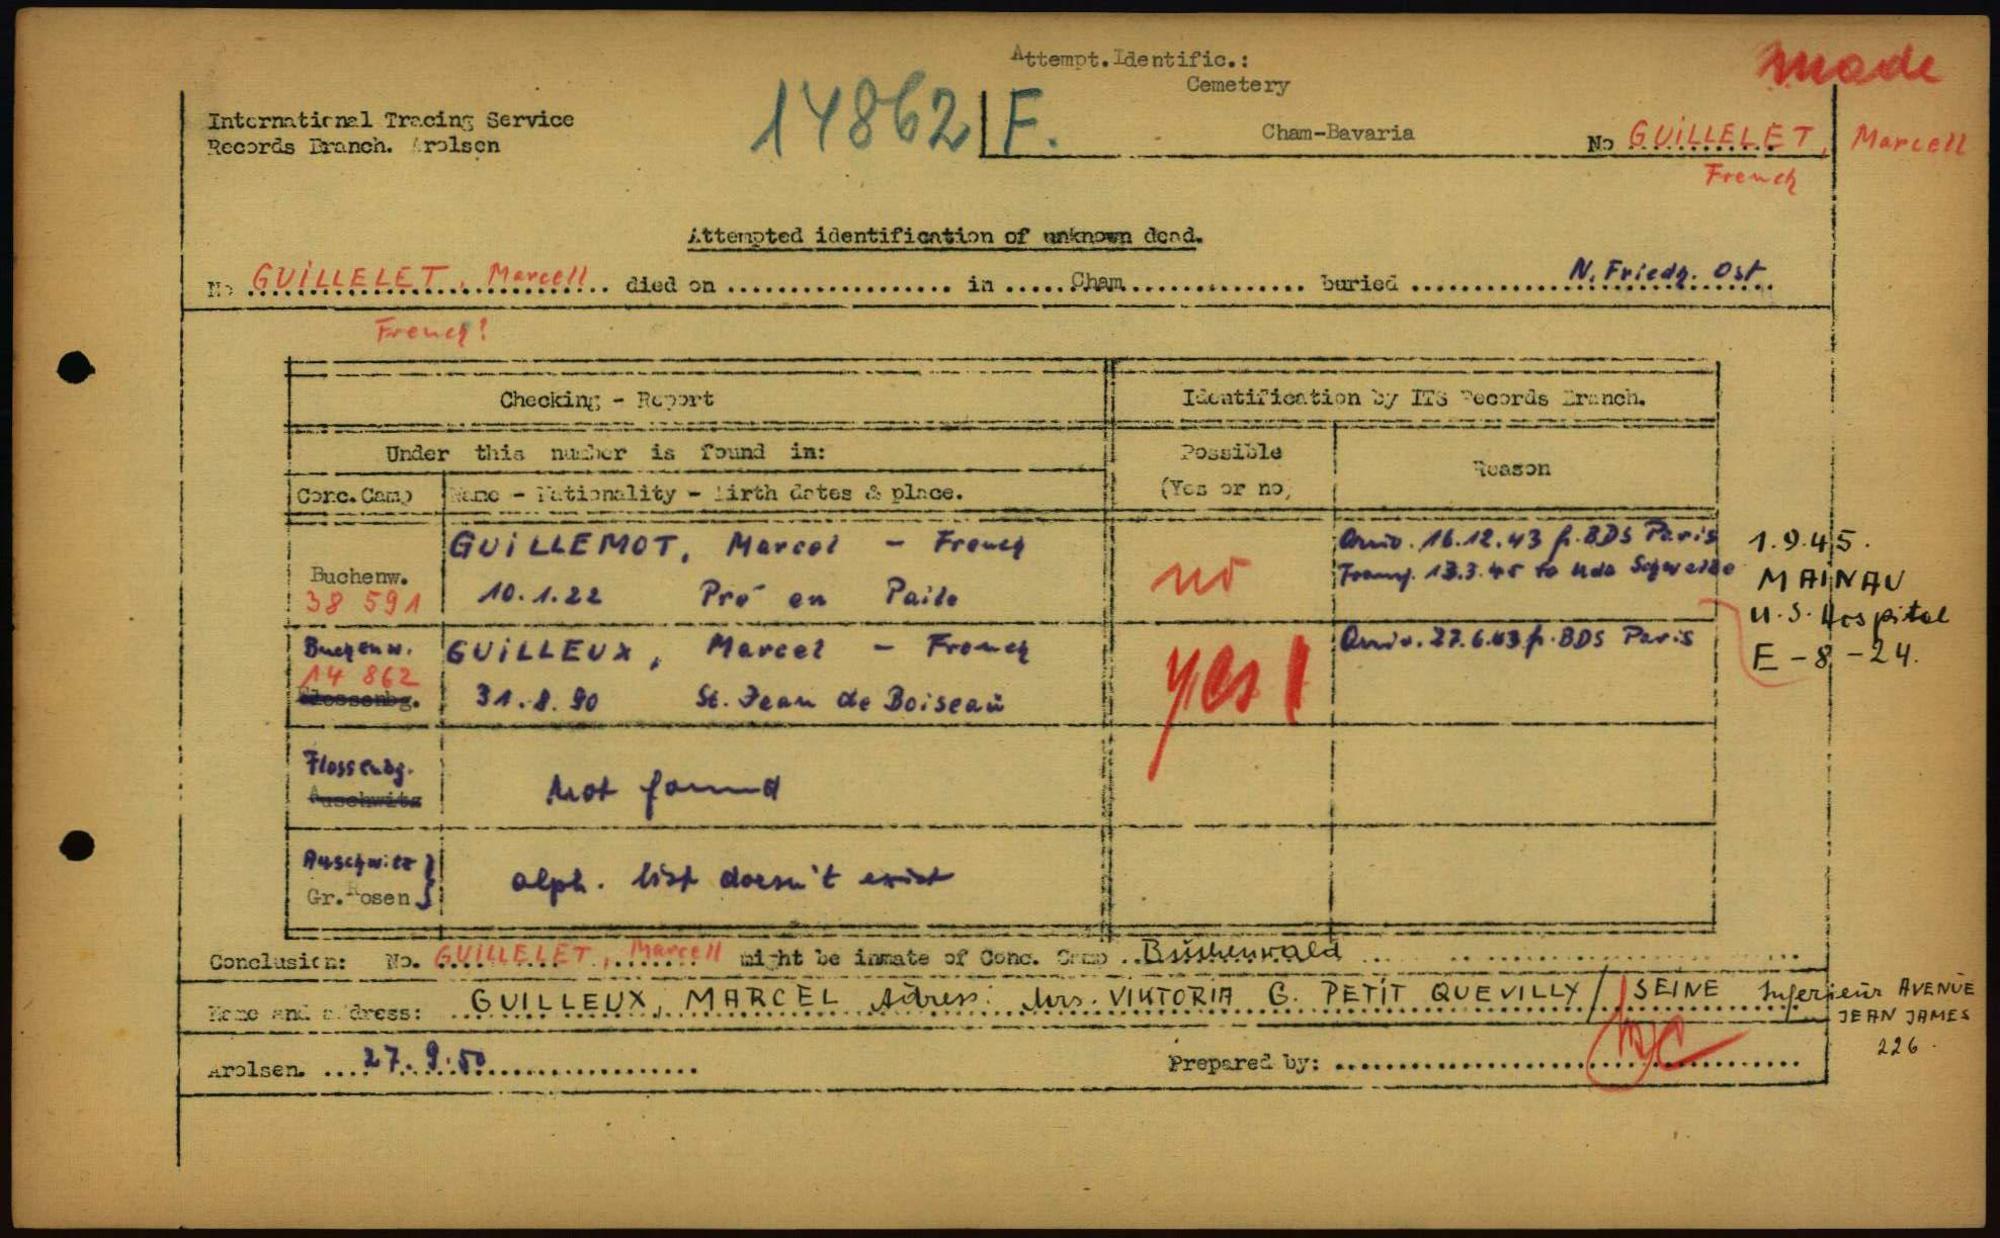 Attempt. Identific.:
Cemetery
made
International Tracing Service
Records Branch. Arolsen
14862 F.
Cham-Bavaria
No GUILLELET, Marcell
French
Attempted identification of unknown dead.
No GUILLELET, Marcell died on in Cham buried N. Friedh. Ost
French!
Checking - Report
Identification by ITS Records Branch.
Under this number is found in:
Possible
(Yes or no)
Reason
Conc. Camp
Name - Nationality - Birth dates & place.
Buchenw.
38 591
GUILLEMOT, Marcel - French
10.1.22 Pré en Paile
no
Arriv. 16.12.43 fr. BDS Paris
Transf. 13.3.45 to Kdo
1.9.45.
MAINAU
U.S. Hospital
E-8-24.
Buchenw.
14 862
Flossenbg.
GUILLEUX, Marcel - French
31.8.90 St. Jean de Boiseau
yes!
Arriv. 27.6.43 fr. BDS Paris
Flossenbg.
Auschwitz
not found
Auschwitz
Gr. Rosen
alph. list doesn't exist
Conclusion: No. GUILLELET, Marcell might be inmate of Conc. Camp Buchenwald
Name and address: GUILLEUX, MARCEL Adress: Mrs. VIKTORIA G. PETIT QUEVILLY / SEINE Inferieur AVENUE
JEAN JAMES
226.
Arolsen. 27.9.50
Prepared by: